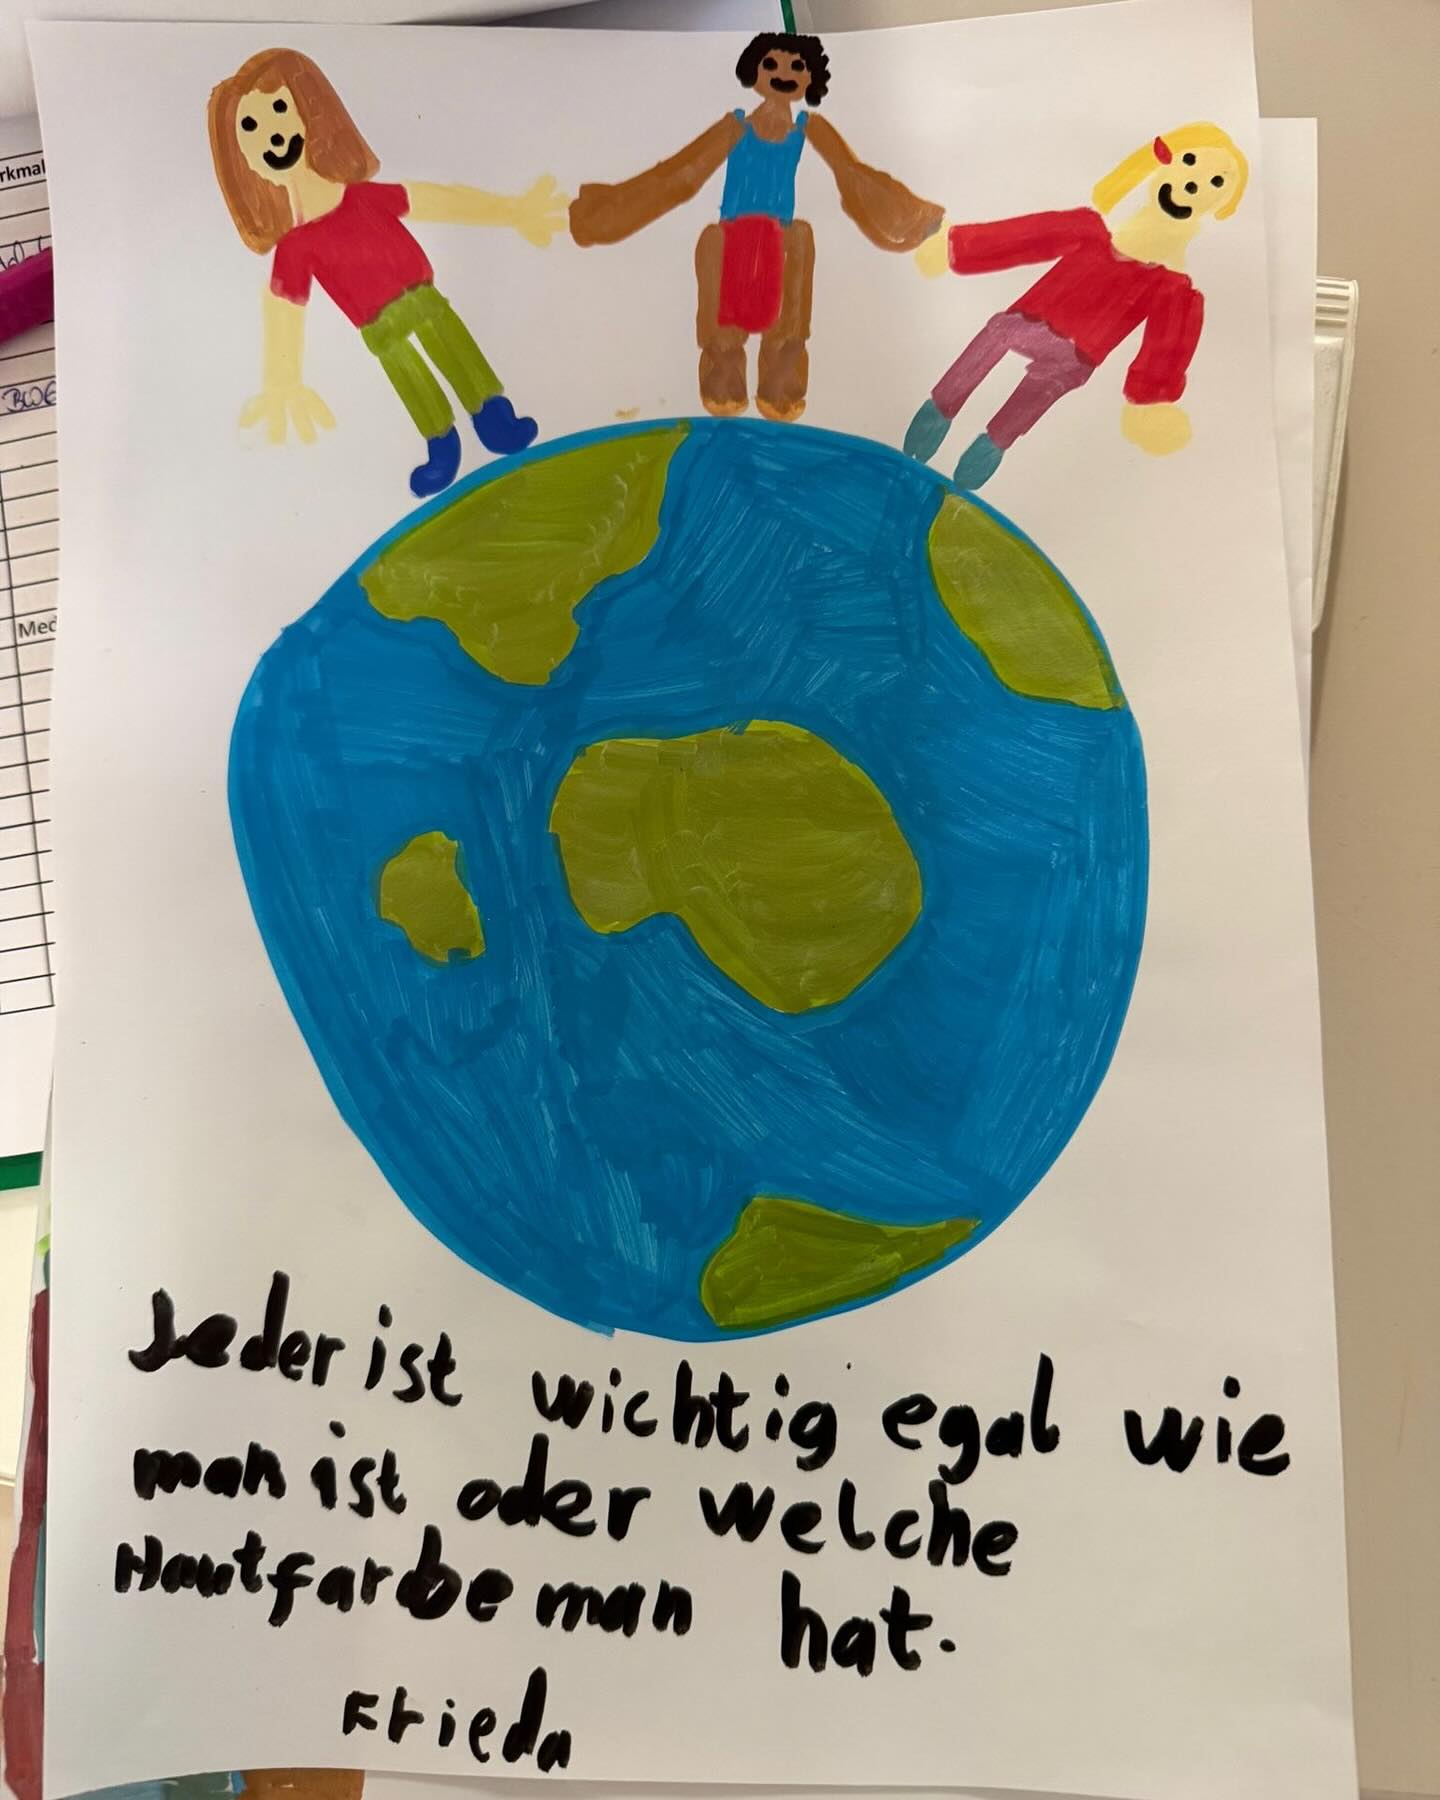 Jeder ist wichtig egal wie
man ist oder welche
Hautfarbe man hat.
Frieda
rkmal
BWE
Med